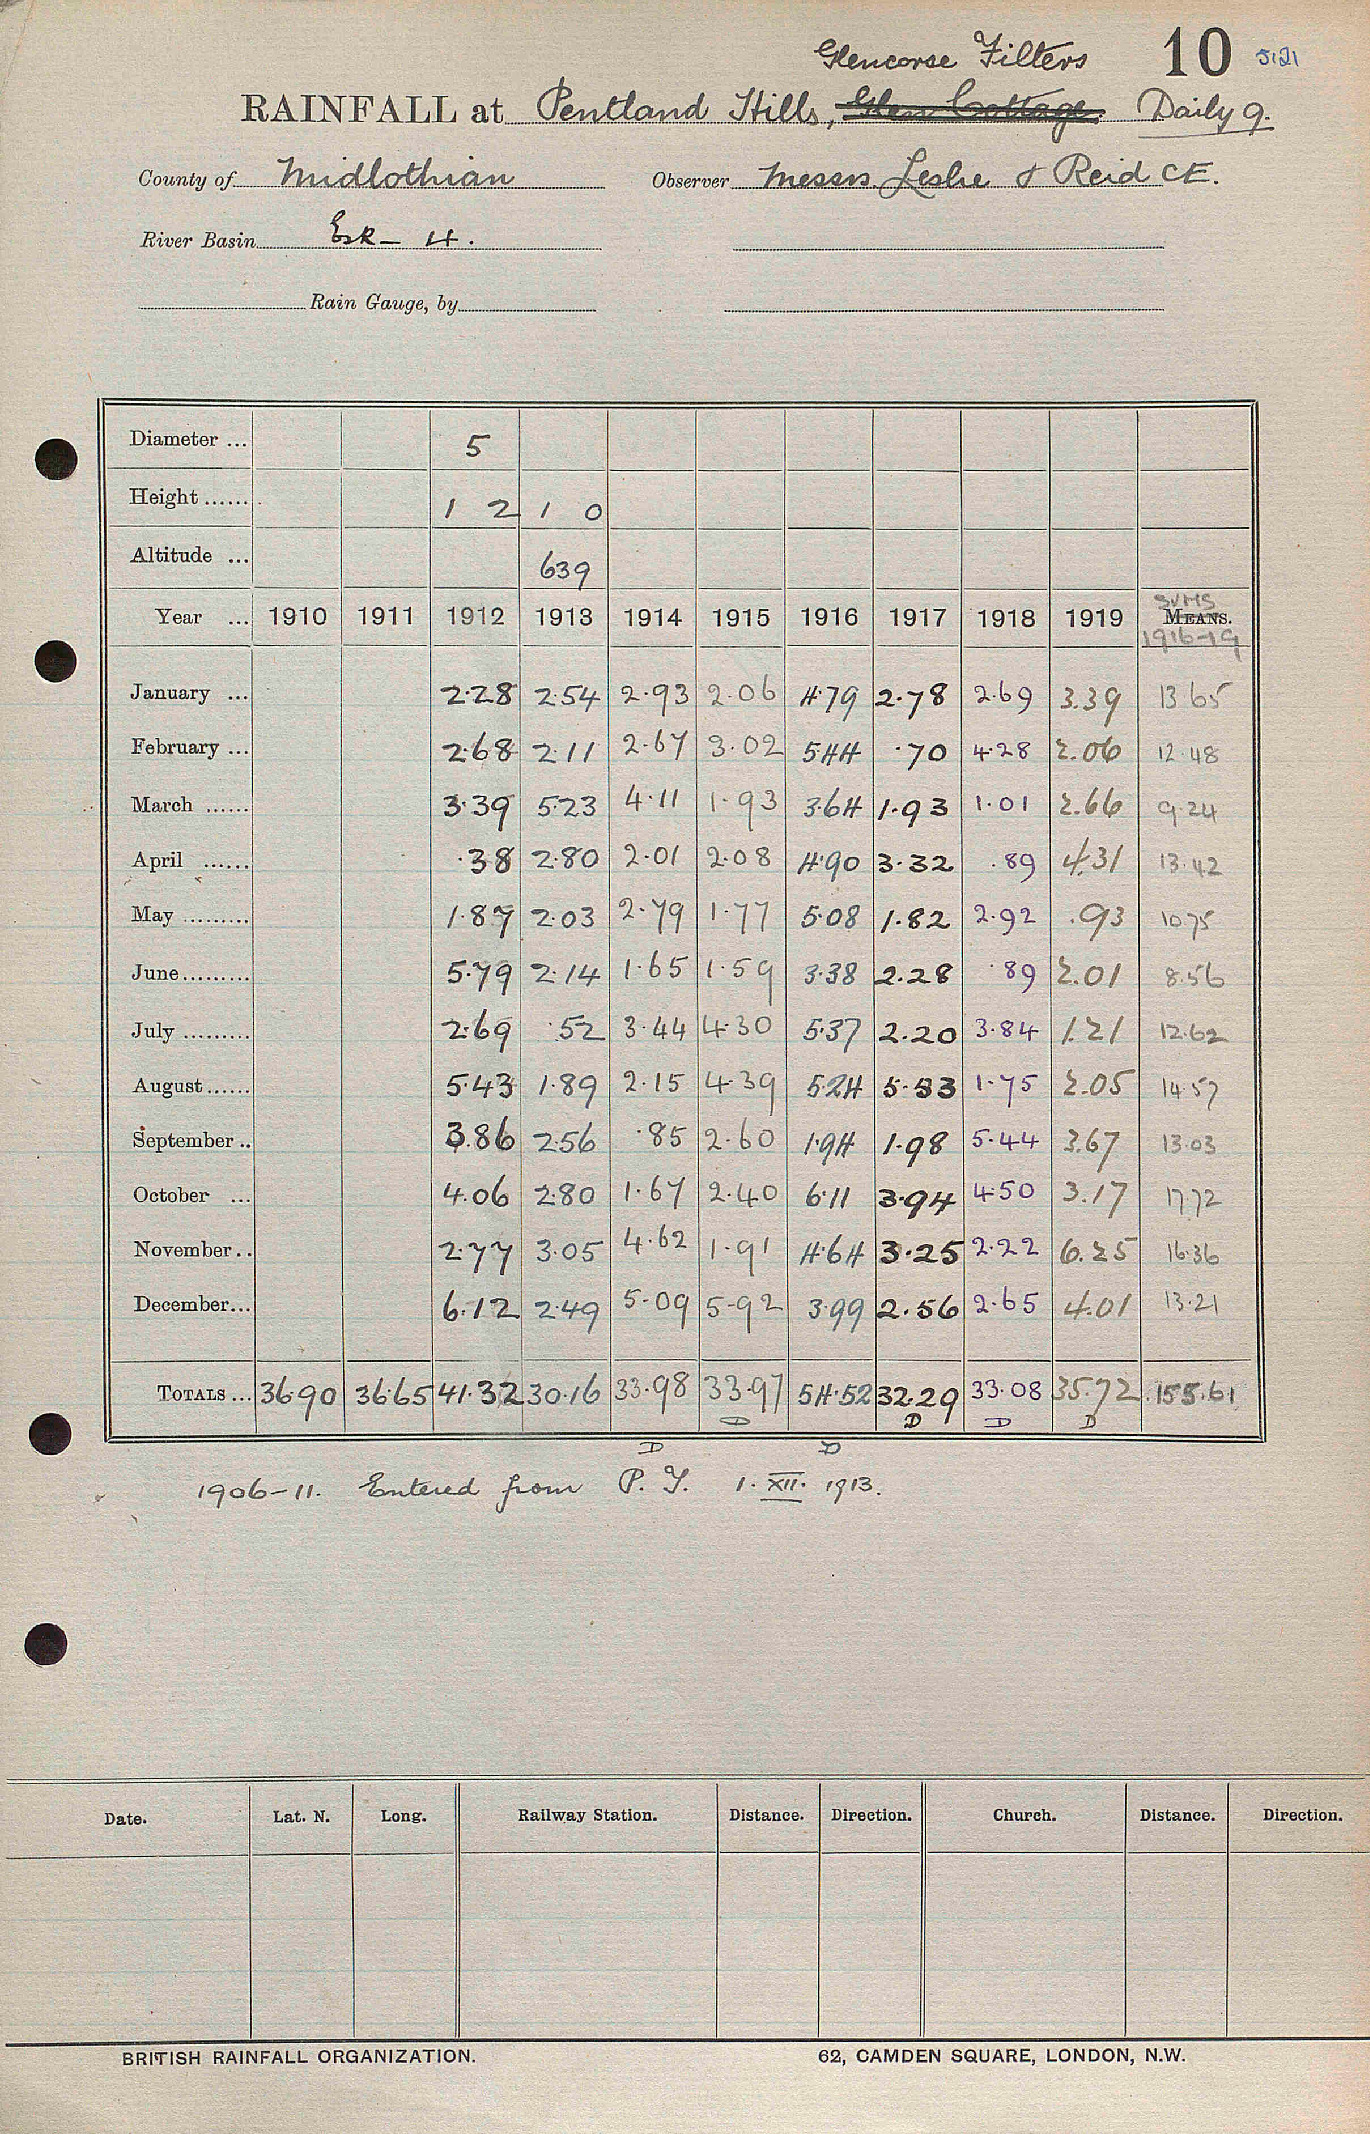 Glencorse Filters 10 5121
RAINFALL at Pentland Hills, Glen Cottage Daily 9.
County of Midlothian Observer Messrs. Leslie & Reid CE.
River Basin Esk - 4.
Rain Gauge, by
Diameter ... 5
Height ...... 1 2 1 0
Altitude ... 639
SUMS
Year ... 1910 1911 1912 1913 1914 1915 1916 1917 1918 1919 MEANS.
1916-19
January ... 2.28 2.54 2.93 2.06 4.79 2.78 2.69 3.39 13.65
February ... 2.68 2.11 2.67 3.02 5.44 .70 4.28 2.06 12.48
March ...... 3.39 5.23 4.11 1.93 3.64 1.93 1.01 2.66 9.24
April ...... .38 2.80 2.01 2.08 4.90 3.32 .89 4.31 13.42
May ......... 1.87 2.03 2.79 1.77 5.08 1.82 2.92 .93 10.75
June......... 5.79 2.14 1.65 1.59 3.38 2.28 .89 2.01 8.56
July ......... 2.69 .52 3.44 4.30 5.37 2.20 3.84 1.21 12.62
August...... 5.43 1.89 2.15 4.39 5.24 5.53 1.75 2.05 14.57
September .. 3.86 2.56 .85 2.60 1.94 1.98 5.44 3.67 13.03
October ... 4.06 2.80 1.67 2.40 6.11 3.94 4.50 3.17 17.72
November.. 2.77 3.05 4.62 1.91 4.64 3.25 2.22 6.25 16.36
December... 6.12 2.49 5.09 5.92 3.99 2.56 2.65 4.01 13.21
TOTALS ... 36.90 36.65 41.32 30.16 33.98 33.97 54.52 32.29 33.08 35.72 155.61
D D D D
D D
1906-11. Entered from P. Y. 1. XII. 1913.
Date. Lat. N. Long. Railway Station. Distance. Direction. Church. Distance. Direction.
BRITISH RAINFALL ORGANIZATION. 62, CAMDEN SQUARE, LONDON, N.W.